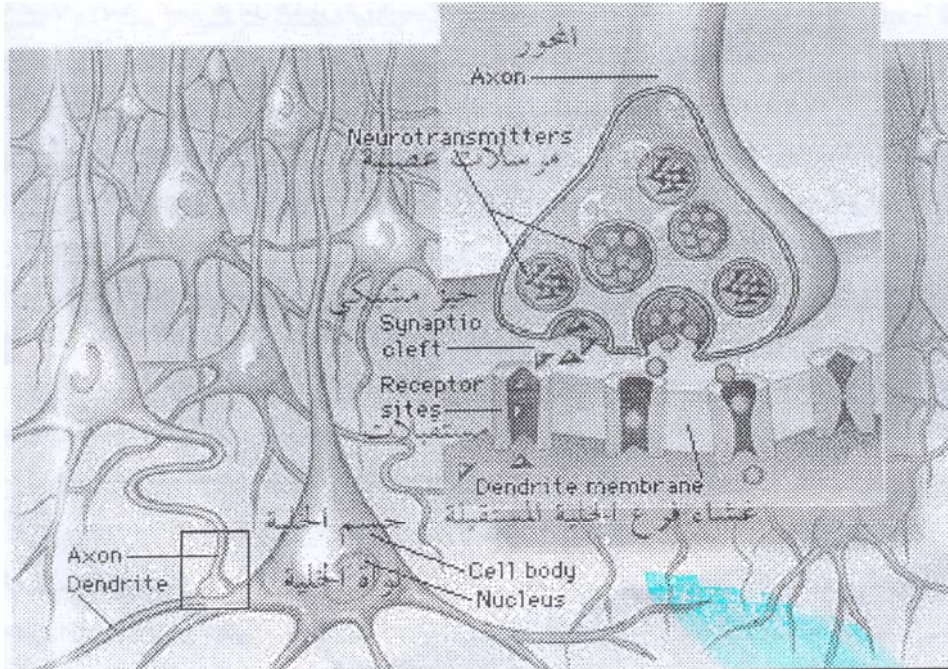 المحور
Axon
Neurotransmitters
مرسلات عصبية
حيز مشتبكي
Synaptic
cleft
Receptor
sites
مستقبلات
Dendrite membrane
غشاء فرع الخلية المستقبلة
جسم الخلية
Axon
Cell body
Dendrite
نواة الخلية
Nucleus